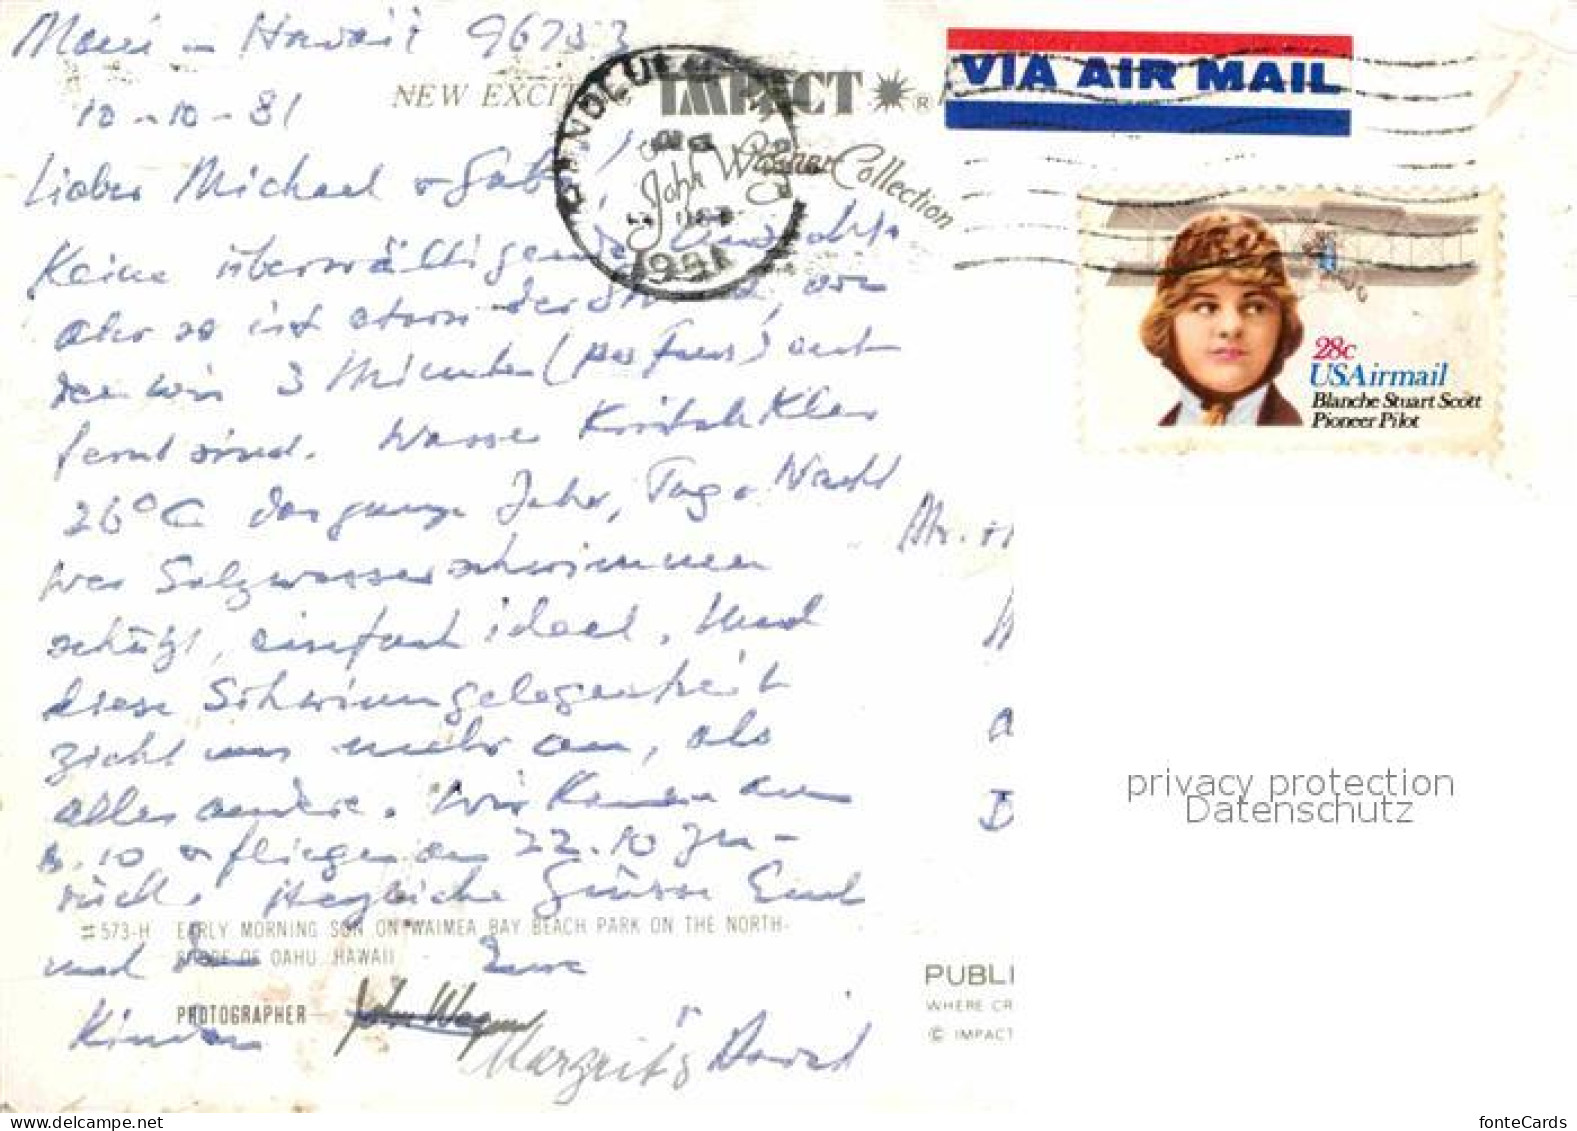 Maui - Hawaii 96753
10-10-81
NEW EXCITING IMPACT ® VIA AIR MAIL
John Wagner Collection
HONOLULU
1981
Lieber Michael + Gabi,
Keine überwältigende
aber so ist etwa der Strand, von
dem wir 3 Minuten (per fuss) ent
fernt sind. Wasser Kristallklar
26°C das ganze Jahr, Tag + Nacht
wer Salzwasserschwimmen
schätzt, einfach ideal. Und
diese Schwimmgelegenheit
zieht uns mehr an, als
alles andere. Wir kamen am
8.10 + fliegen am 22.10 zu-
rück. Herzliche Grüsse Euch
und Eure
Kinder
Margrit & David
28c
USAirmail
Blanche Stuart Scott
Pioneer Pilot
#573-H EARLY MORNING SUN ON WAIMEA BAY BEACH PARK ON THE NORTH-
SHORE OF OAHU, HAWAII
PHOTOGRAPHER John Wagner
PUBLI
WHERE CR
© IMPACT
privacy protection
Datenschutz
fontenata.net
fonteCards